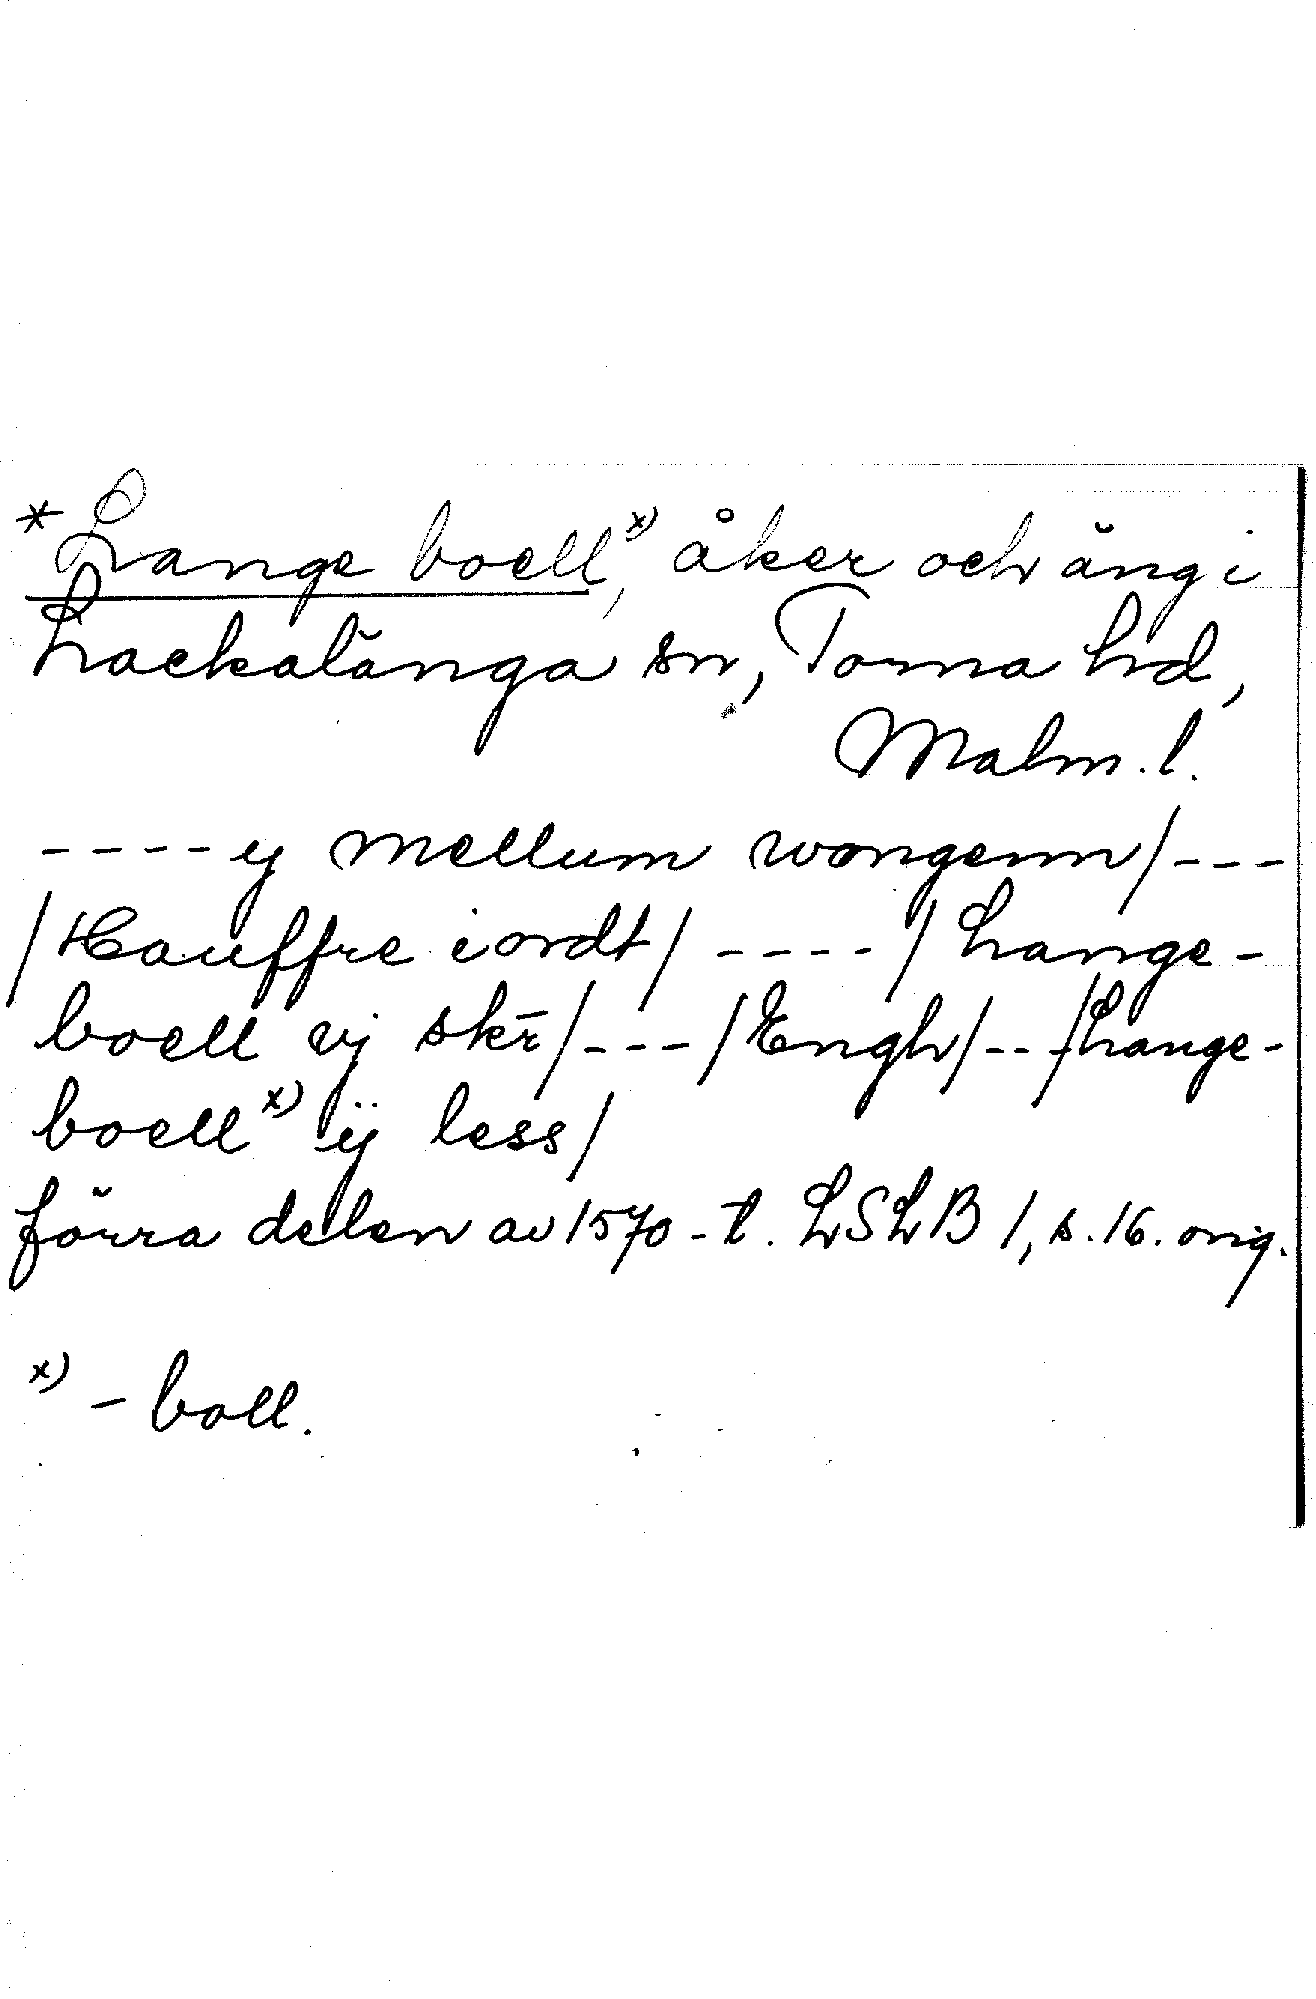 *Lange boell,x) åker och äng i
Lackalänga sn, Torna hd,
Malm. l.
---- y mellum wongenn/---
/Hauffre iordt/ ---- /Lange-
boell vj skr̄/---/Engh/---/Lange-
boellx) ÿ less/
förra delen av 1570-t. LSLB 1, s. 16. orig.
x) - boll.